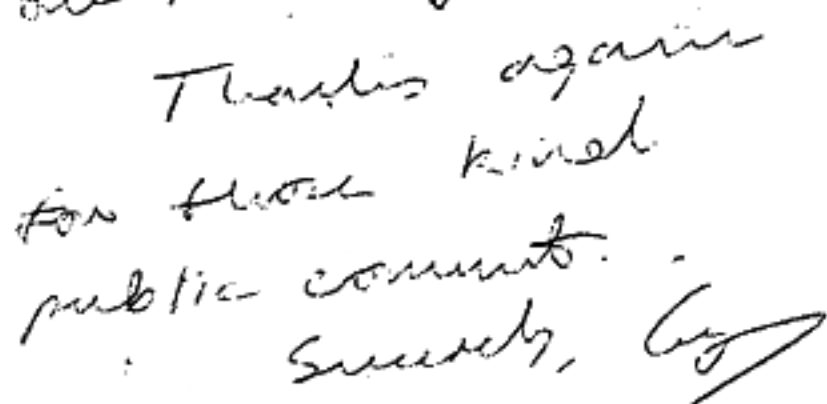 Thanks again
for those kind
public comments.
Sincerely,